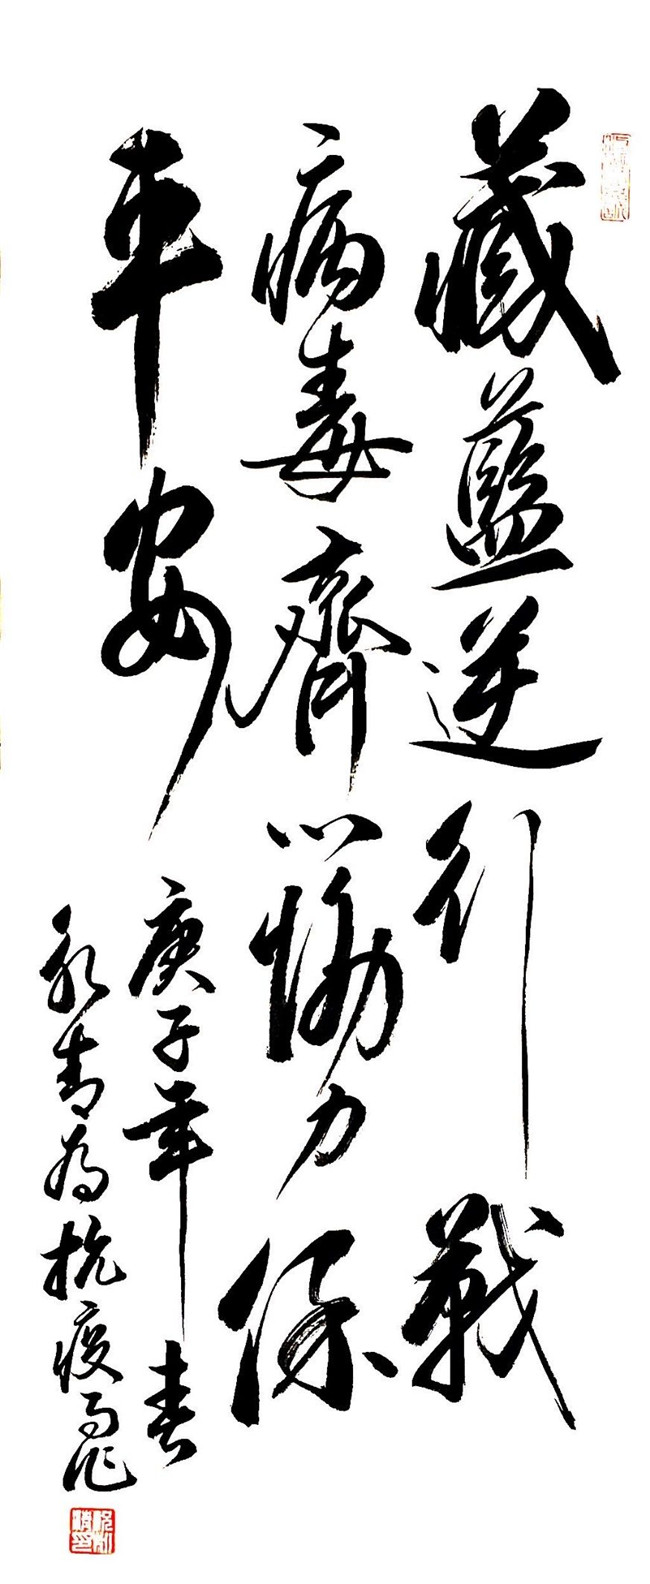 藏藍逆行戰
病毒齊心恊力保
平安
庚子年春
永青為抗疫而作